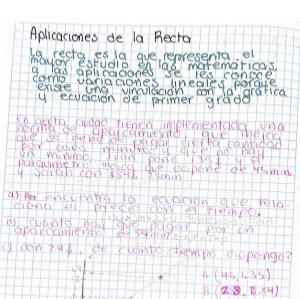 Aplicaciones de la Recta
La recta es la que representa el
mayor estudio en las matemáticas,
a las aplicaciones se les conoce
como variaciones lineales porque
existe una vinculación con la gráfica
y ecuación de primer grado
En cierta ciudad tienen implementada una
norma de que indica
que se debe pagar cierta cantidad
por cada minuto que no haya
un mínimo Juan pone y el
parquímetro indica que dispone de 45 min
y Sarah con
a) encuentra la ecuación que rela
ciona el precio con el tiempo.
b) cuanto hay que pagar por un
aparcamiento de
c) con 24$, de cuanto tiempo dispongo?
A (45, 1.35)
B (28, 0.84)